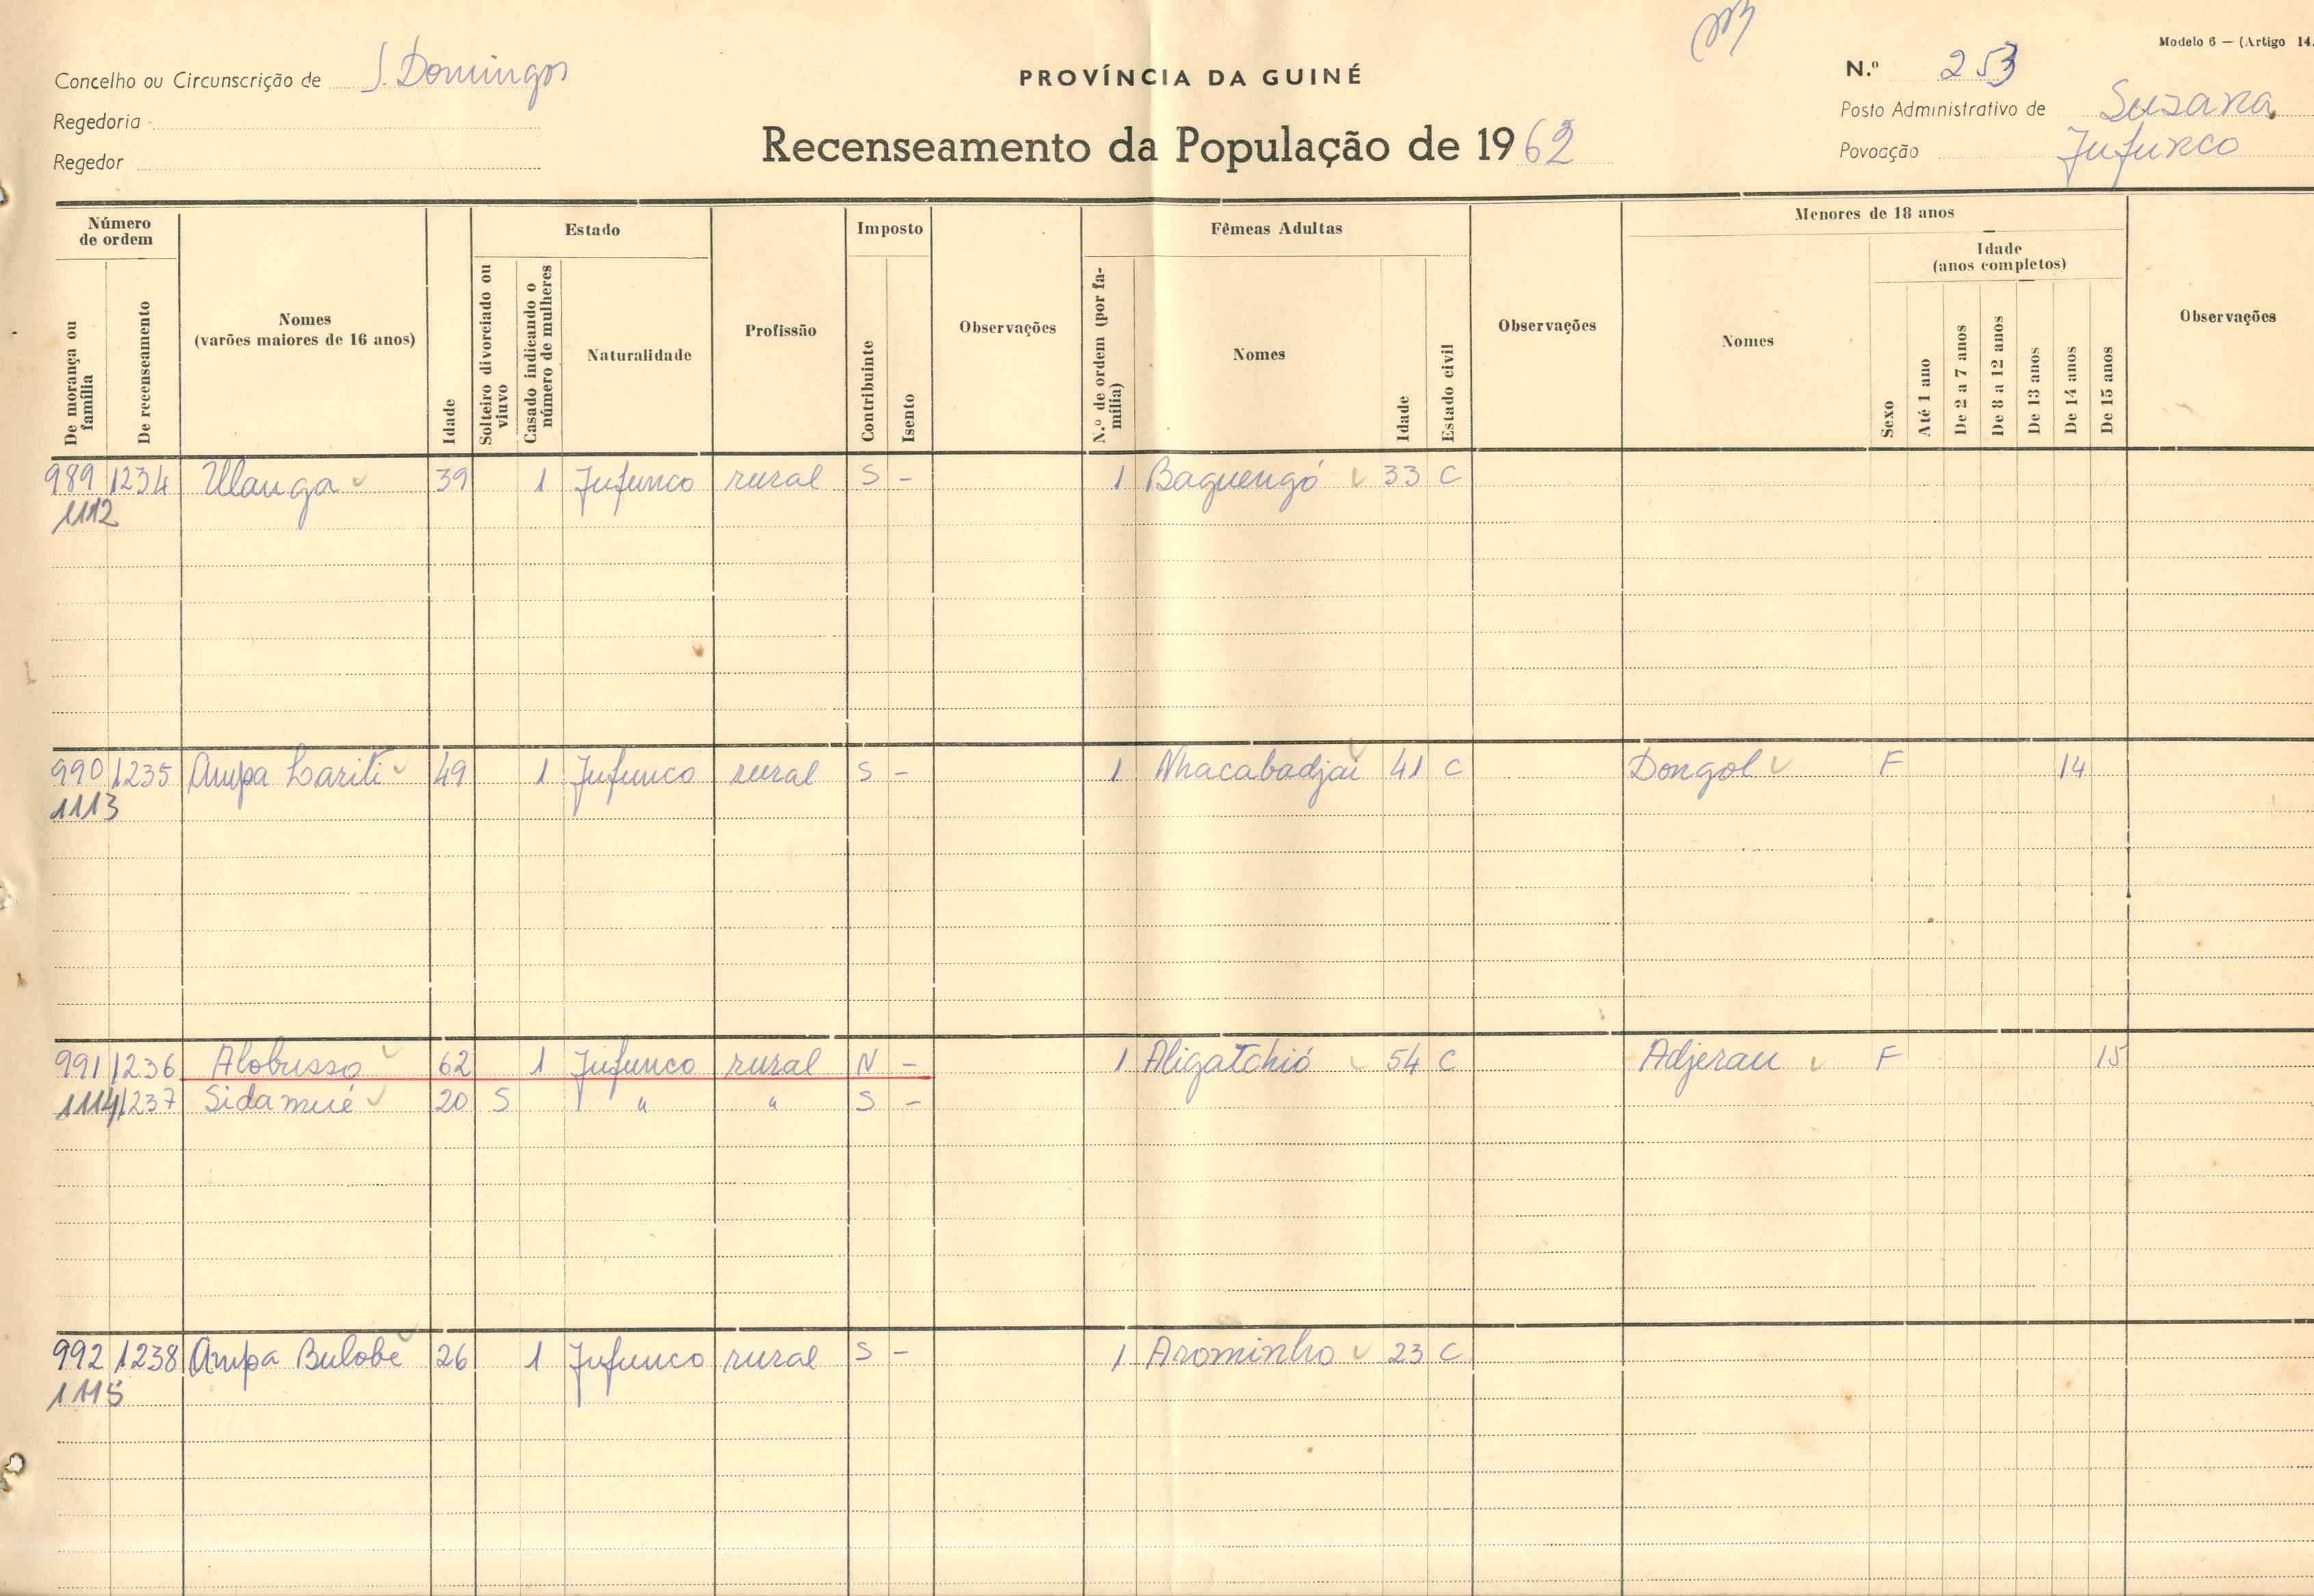 Modelo 6 — (Artigo 14.
Concelho ou Circunscrição de S. Domingos
PROVÍNCIA DA GUINÉ
N.º 253
Regedoria
Posto Administrativo de Suzana
Regedor
Recenseamento da População de 1962
Povoação Jufunco
Número de ordem
De morança ou família
De recenseamento
Nomes
(varões maiores de 16 anos)
Idade
Estado
Solteiro divorciado ou viuvo
Casado indicando o número de mulheres
Naturalidade
Profissão
Imposto
Contribuinte
Isento
Observações
Fêmeas Adultas
N.º de ordem (por família)
Nomes
Idade
Estado civil
Observações
Menores de 18 anos
Nomes
Sexo
Idade
(anos completos)
Até 1 ano
De 2 a 7 anos
De 8 a 12 anos
De 13 anos
De 14 anos
De 15 anos
Observações
989 1234 Ulanga 39 1 Jufunco rural S - 1 Baguengó 33 C
1112
990 1235 Ampa Lariti 49 1 Jufunco rural S - 1 Nhacabadjai 41 C Dongol F 14
1113
991 1236 Alobusso 62 1 Jufunco rural N - 1 Aligatchió 54 C Adjerau F 15
1114 1237 Sidamué 20 S " " S -
992 1238 Ampa Bulobé 26 1 Jufunco rural S - 1 Arominho 23 C
1115